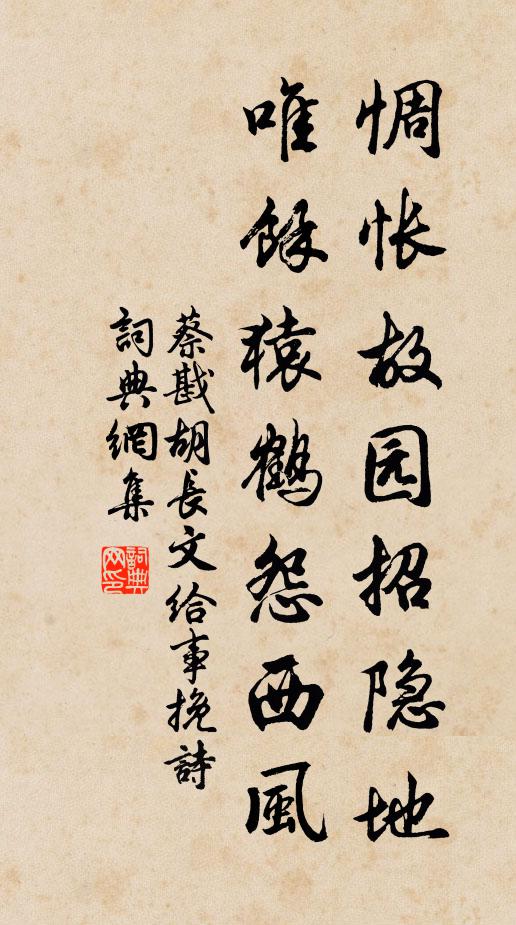 惆怅故园招隐地
唯餘猿鶴怨西風
蔡戡胡長文给事挽詩
詞典網集
詞典网印